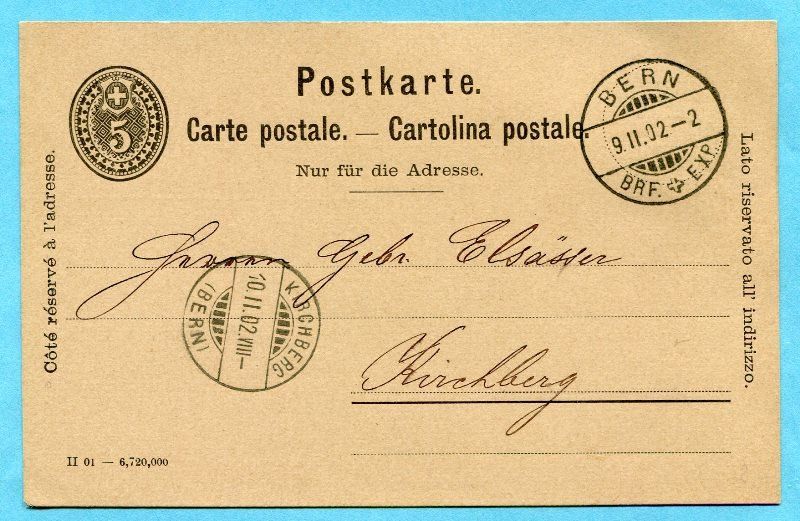 Postkarte.
Carte postale. — Cartolina postale.
Nur für die Adresse.
5
BERN
9.II.02–2
BRF. EXP.
Côté réservé à l'adresse.
Lato riservato all' indirizzo.
Herren Gebr. Elsässer
KIRCHBERG
10.II.02.VIII–
(BERN)
Kirchberg
II 01 — 6,720,000